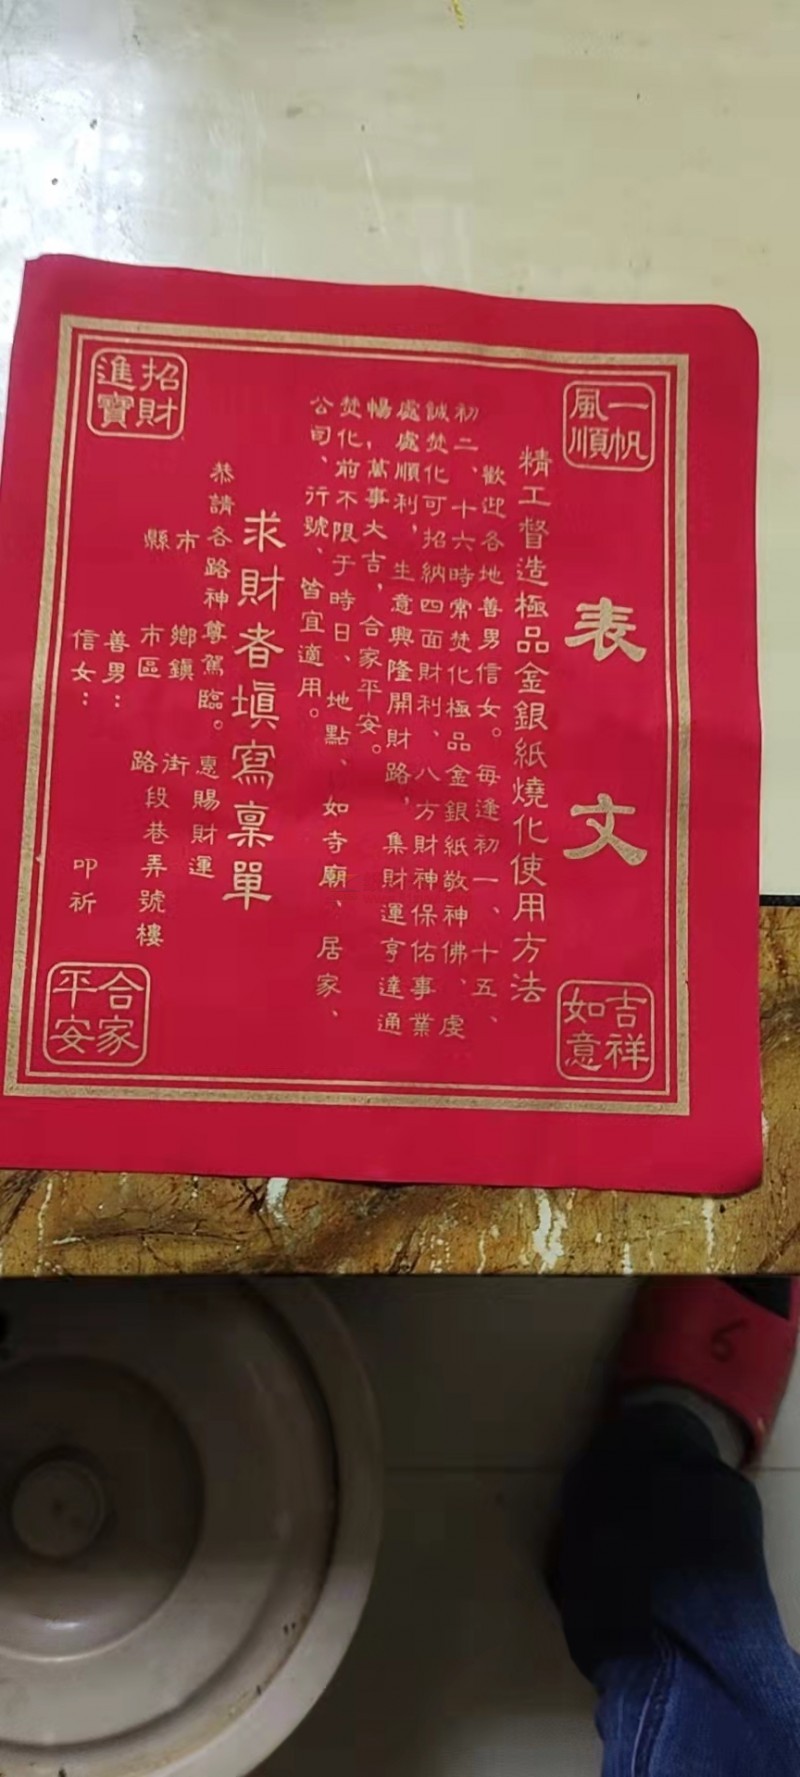 一帆
風順
表文
吉祥
如意
精工督造極品金銀紙燒化使用方法
歡迎各地善男信女。每逢初一、十五、
初二、十六時常焚化極品金銀紙敬神佛、虔
誠焚化可招納四面財利、八方財神保佑事業
處處順利，生意興隆開財路，集財運亨達通
暢，萬事大吉，合家平安。
焚化前不限于時日、地點、如寺廟、居家、
公司、行號、皆宜適用。
求財者填寫稟單
恭請各路神尊駕臨。惠賜財運
市 鄉鎮 街
縣 市區 路段巷弄號樓
善男：
信女： 叩祈
招財
進寶
合家
平安
6